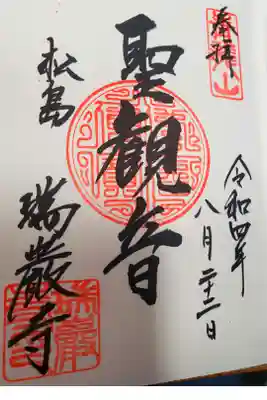 奉拝
令和四年
八月二十二日
聖観音
松島
瑞巌寺